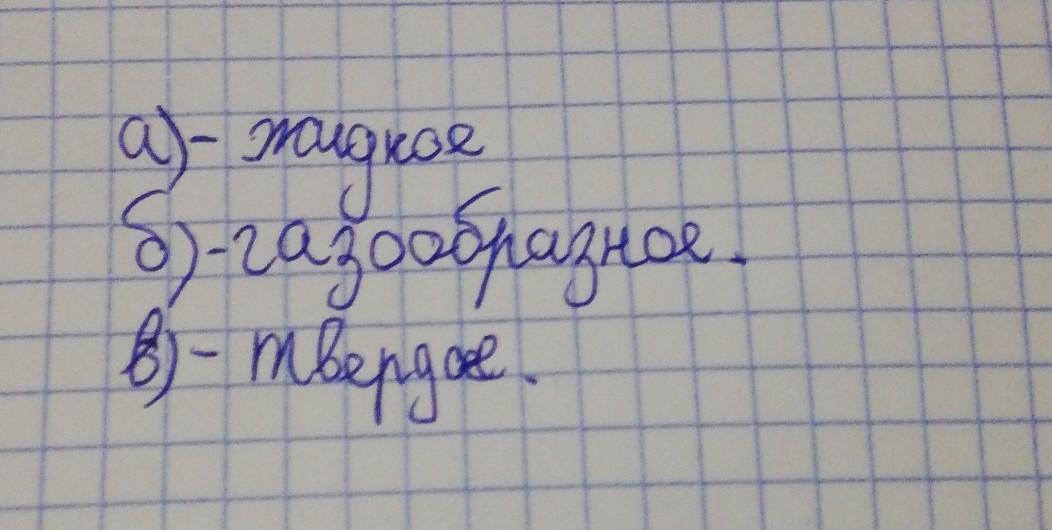 а)- жидкое
б)-газообразное.
в)- твердое.